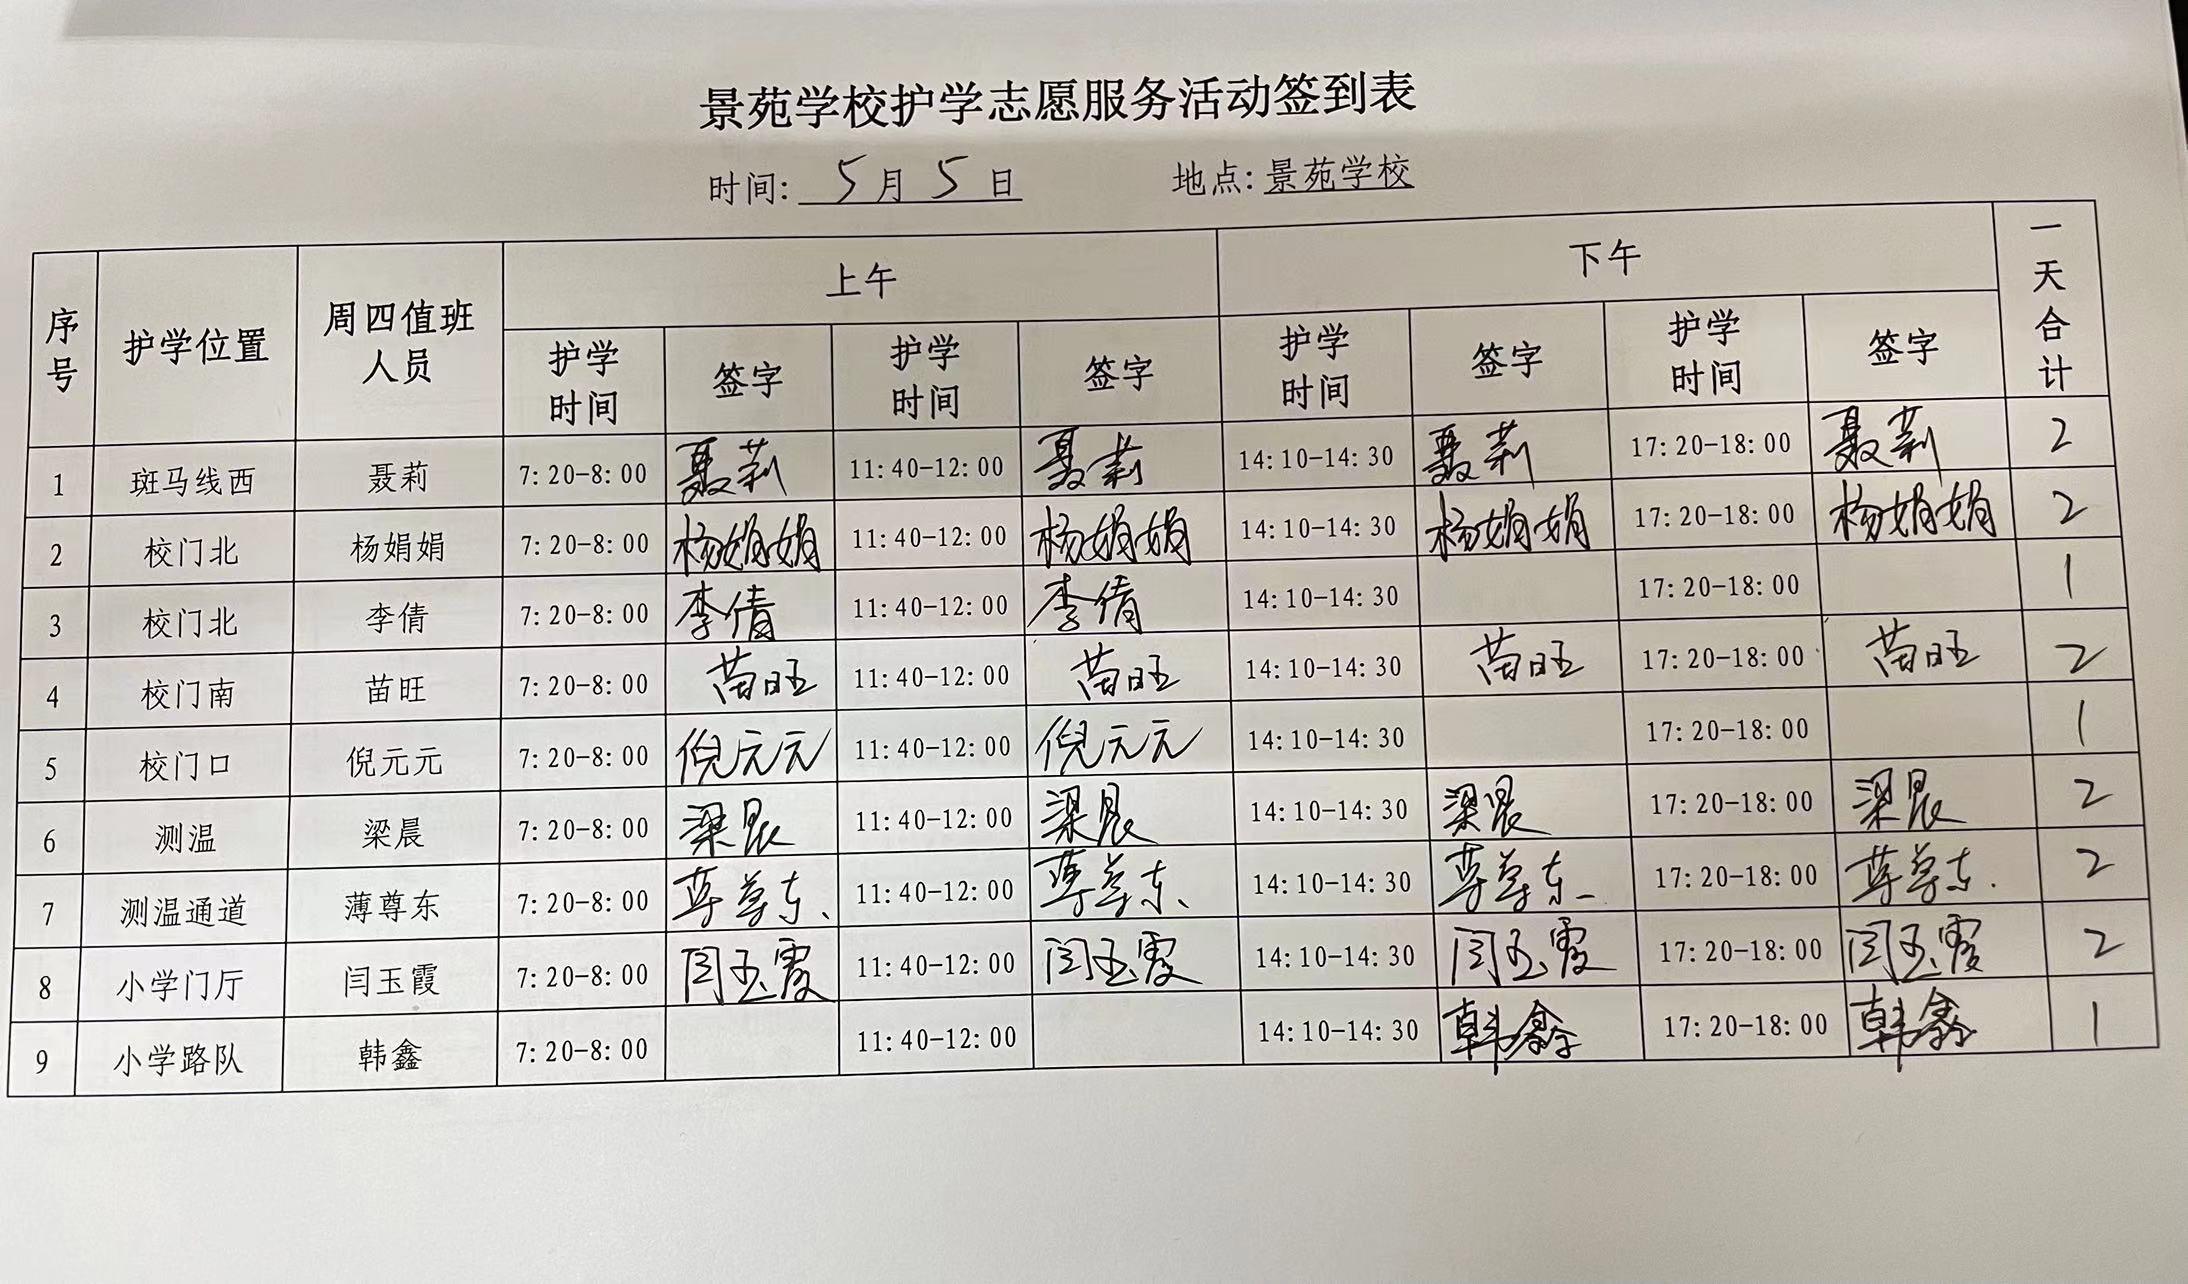 景苑学校护学志愿服务活动签到表
时间: 5月5日 地点:景苑学校
序号 护学位置 周四值班人员 上午 下午 一天合计
护学时间 签字 护学时间 签字 护学时间 签字 护学时间 签字
1 斑马线西 聂莉 7:20-8:00 聂莉 11:40-12:00 聂莉 14:10-14:30 聂莉 17:20-18:00 聂莉 2
2 校门北 杨娟娟 7:20-8:00 杨娟娟 11:40-12:00 杨娟娟 14:10-14:30 杨娟娟 17:20-18:00 杨娟娟 2
3 校门北 李倩 7:20-8:00 李倩 11:40-12:00 李倩 14:10-14:30 17:20-18:00 1
4 校门南 苗旺 7:20-8:00 苗旺 11:40-12:00 苗旺 14:10-14:30 苗旺 17:20-18:00 苗旺 2
5 校门口 倪元元 7:20-8:00 倪元元 11:40-12:00 倪元元 14:10-14:30 17:20-18:00 1
6 测温 梁晨 7:20-8:00 梁晨 11:40-12:00 梁晨 14:10-14:30 梁晨 17:20-18:00 梁晨 2
7 测温通道 薄尊东 7:20-8:00 薄尊东 11:40-12:00 薄尊东 14:10-14:30 薄尊东 17:20-18:00 薄尊东 2
8 小学门厅 闫玉霞 7:20-8:00 闫玉霞 11:40-12:00 闫玉霞 14:10-14:30 闫玉霞 17:20-18:00 闫玉霞 2
9 小学路队 韩鑫 7:20-8:00 11:40-12:00 14:10-14:30 韩鑫 17:20-18:00 韩鑫 1